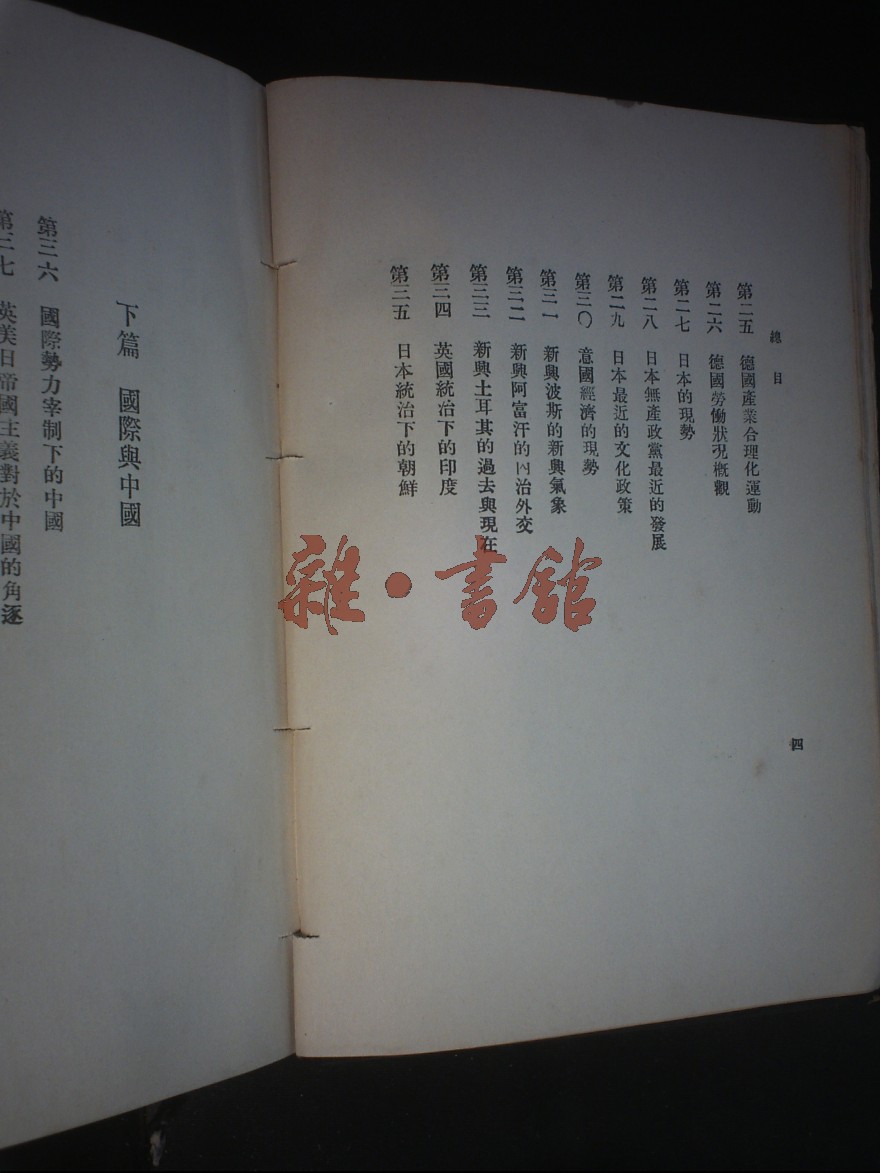 總目
第二五 德國產業合理化運動
第二六 德國勞働狀況概觀
第二七 日本的現勢
第二八 日本無產政黨最近的發展
第二九 日本最近的文化政策
第三〇 意國經濟的現勢
第三一 新興波斯的新興氣象
第三二 新興阿富汗的內治外交
第三三 新興土耳其的過去與現在
第三四 英國統治下的印度
第三五 日本統治下的朝鮮
四
下篇 國際與中國
第三六 國際勢力宰制下的中國
第三七 英美日帝國主義對於中國的角逐
雜·書館